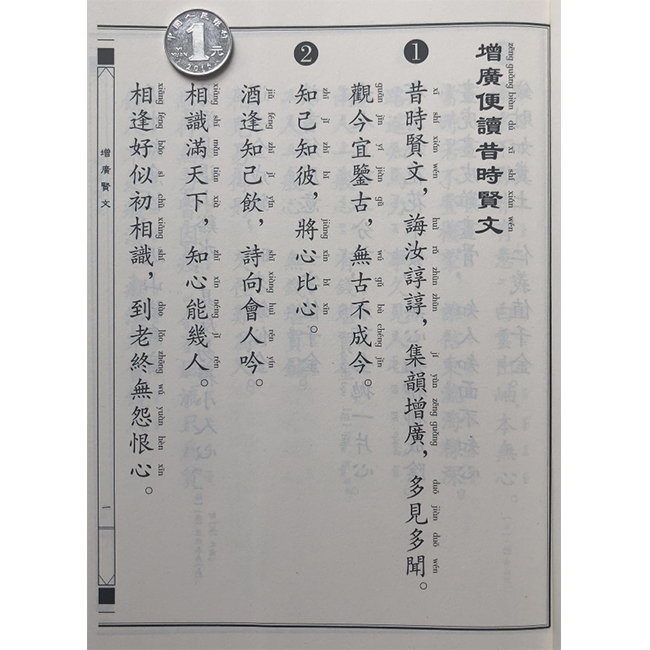 增廣便讀昔時賢文
zēng guǎng biàn dú xī shí xián wén
❶
昔時賢文，誨汝諄諄，集韻增廣，多見多聞。
xī shí xián wén huì rǔ zhūn zhūn jí yùn zēng guǎng duō jiàn duō wén
觀今宜鑒古，無古不成今。
guān jīn yí jiàn gǔ wú gǔ bù chéng jīn
❷
知己知彼，將心比心。
zhī jǐ zhī bǐ jiāng xīn bǐ xīn
酒逢知己飲，詩向會人吟。
jiǔ féng zhī jǐ yǐn shī xiàng huì rén yín
相識滿天下，知心能幾人。
xiāng shí mǎn tiān xià zhī xīn néng jǐ rén
相逢好似初相識，到老終無怨恨心。
xiāng féng hǎo sì chū xiāng shí dào lǎo zhōng wú yuàn hèn xīn
增廣賢文
一
中国人民银行
1元